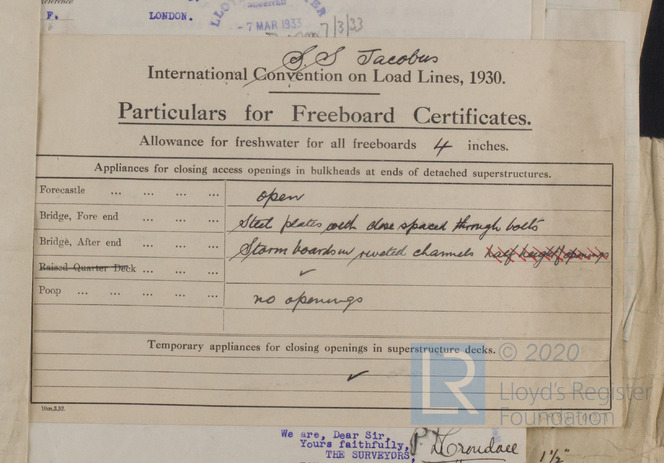 F. LONDON.
LLOYD'S REGISTER
RECEIVED
-7 MAR 1933
7/3/33
S. S Jacobus
International Convention on Load Lines, 1930.
Particulars for Freeboard Certificates.
Allowance for freshwater for all freeboards 4 inches.
Appliances for closing access openings in bulkheads at ends of detached superstructures.
Forecastle ... ... ... ... open
Bridge, Fore end ... ... ... Steel plates with close spaced through bolts
Bridge, After end ... ... ... Storm boards in riveted channels half height of openings
Raised Quarter Deck ... ... ... ✓
Poop ... ... ... ... no openings
Temporary appliances for closing openings in superstructure decks.
✓
10m,3,32.
LR © 2020
Lloyd's Register
Foundation
We are, Dear Sir,
Yours faithfully,
THE SURVEYORS,
1½"